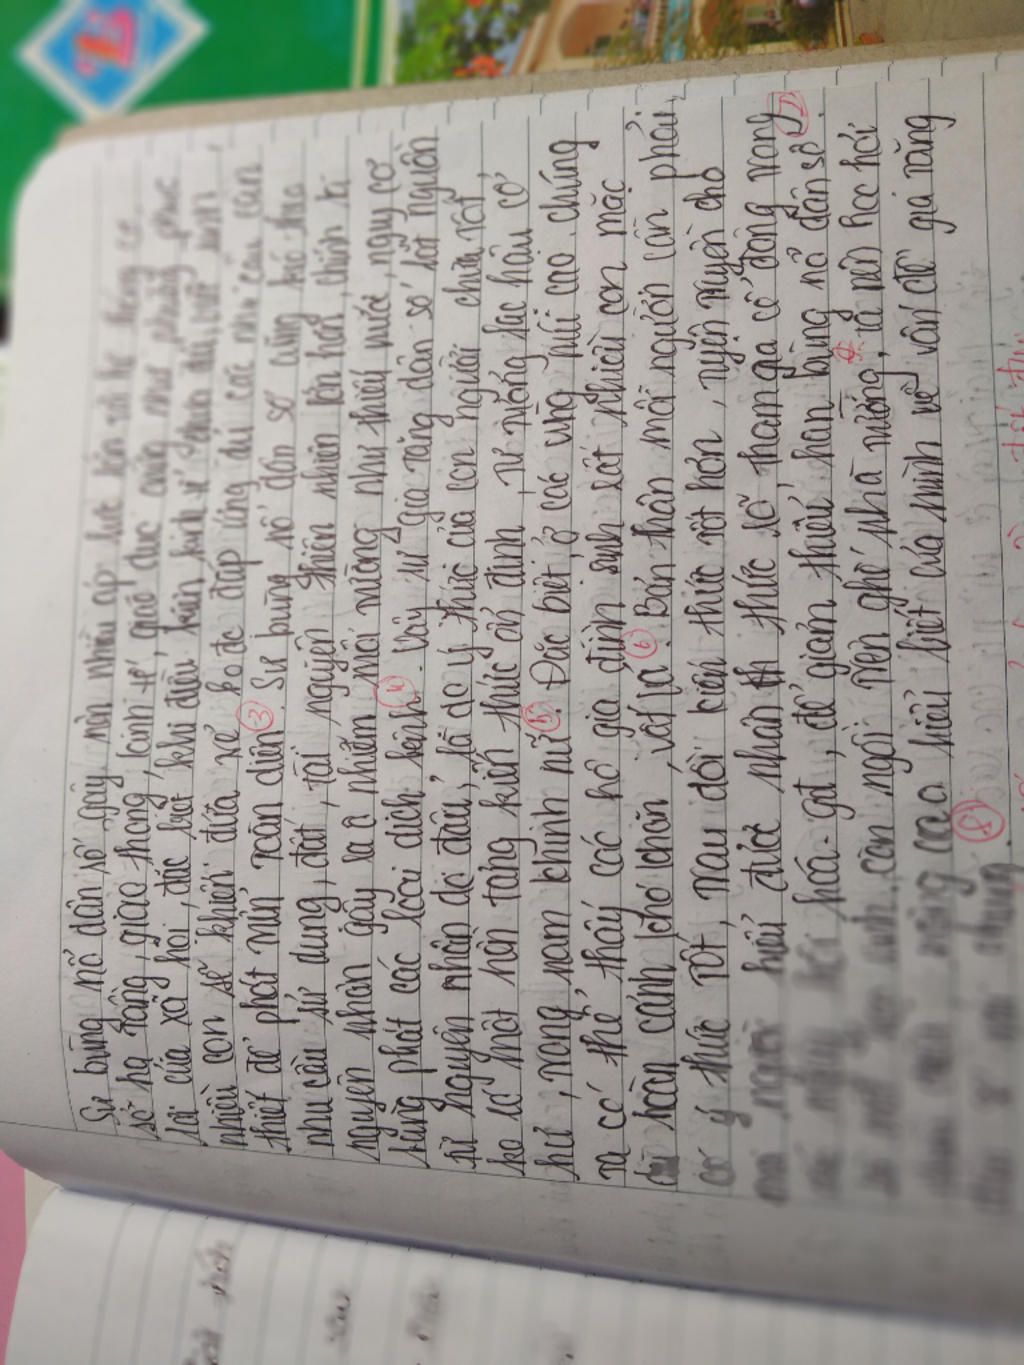 Sự bùng nổ dân số gây nên nhiều áp lực lên tài
sở hạ tầng, giao thông, kinh tế, giáo dục cũng như phúc
lợi của xã hội, đặc biệt khi điều kiện kinh tế chưa đủ, việc sinh
nhiều con sẽ khiến đứa trẻ ko đc đáp ứng đủ các nhu cầu cần
thiết để phát triển toàn diện (3). Sự bùng nổ dân số cũng kéo theo
nhu cầu sử dụng đất, tài nguyên thiên nhiên lớn hơn, chính là
nguyên nhân gây ra ô nhiễm môi trường như thiếu nước, nguy cơ
bùng phát các loại dịch bệnh (4). Vậy sự gia tăng dân số bắt nguồn
từ nguyên nhân do đâu, là do ý thức của con người chưa tốt,
ko có một nền tảng kiến thức ổn định, tư tưởng lạc hậu cổ
hủ, trọng nam khinh nữ (5). Đặc biệt ở các vùng núi cao chúng
ta có thể thấy các hộ gia đình sinh rất nhiều con mặc
dù hoàn cảnh khó khăn, vất vả (6). Bản thân mỗi người cần phải
có ý thức tốt, trau dồi kiến thức tốt hơn, tuyên truyền cho
mọi người hiểu được nhận thức rõ tham gia cổ động trong
hóa-gđ, để giảm thiểu hạn bùng nổ dân số (7).
còn ngồi trên ghế nhà trường, ta nên học hỏi
nâng cao hiểu biết của mình về vấn đề gia tăng
chung. (8)